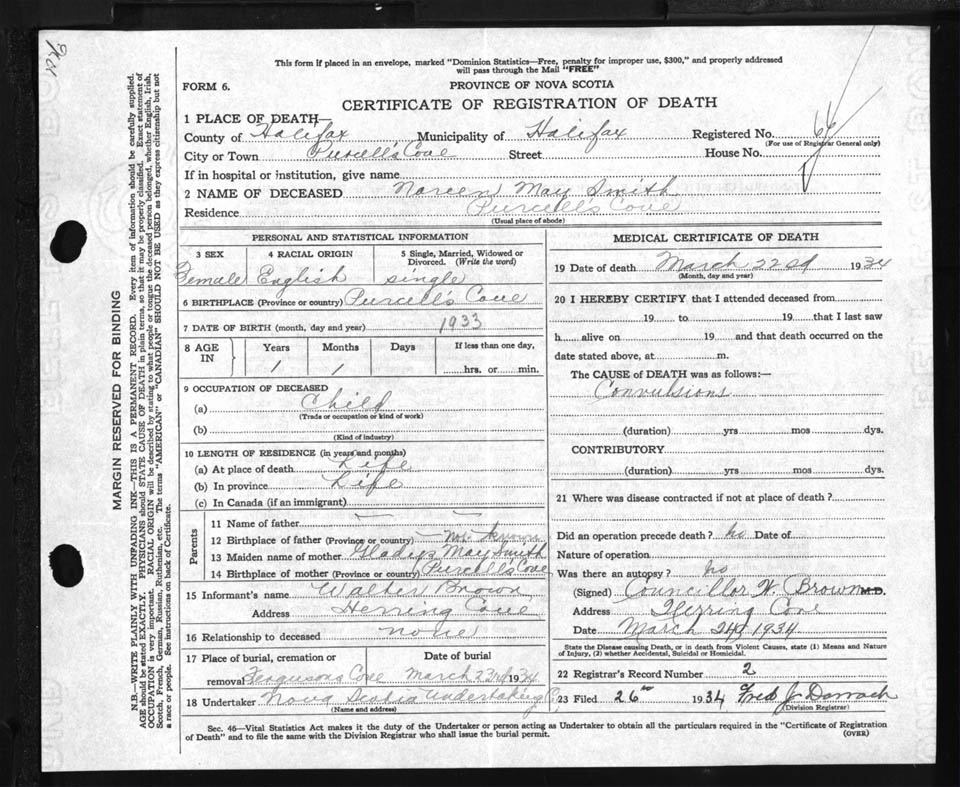 This form if placed in an envelope, marked "Dominion Statistics—Free, penalty for improper use, $300," and properly addressed
will pass through the Mail "FREE"
FORM 6.
PROVINCE OF NOVA SCOTIA
CERTIFICATE OF REGISTRATION OF DEATH
1 PLACE OF DEATH—
County of Halifax Municipality of Halifax Registered No.
(For use of Registrar General only)
City or Town Purcell's Cove Street House No.
If in hospital or institution, give name
2 NAME OF DECEASED Noreen May Smith
Residence Purcell's Cove
(Usual place of abode)
PERSONAL AND STATISTICAL INFORMATION
3 SEX 4 RACIAL ORIGIN 5 Single, Married, Widowed or Divorced. (Write the word)
Female English single
6 BIRTHPLACE (Province or country) Purcell's Cove
7 DATE OF BIRTH (month, day and year) 1933
8 AGE IN Years Months Days If less than one day,
1 1 hrs. or min.
9 OCCUPATION OF DECEASED
(a) Child
(Trade or occupation or kind of work)
(b)
(Kind of industry)
10 LENGTH OF RESIDENCE (in years and months)
(a) At place of death Life
(b) In province Life
(c) In Canada (if an immigrant)
Parents
11 Name of father — —
12 Birthplace of father (Province or country) Not known
13 Maiden name of mother Gladys May Smith
14 Birthplace of mother (Province or country) Purcell's Cove
15 Informant's name Walter Brown
Address Herring Cove
16 Relationship to deceased none
17 Place of burial, cremation or removal Date of burial
Fergusons Cove March 23rd 1934
18 Undertaker Nova Scotia Undertaking Co
(Name and address)
MEDICAL CERTIFICATE OF DEATH
19 Date of death March 22nd 1934
(Month, day and year)
20 I HEREBY CERTIFY that I attended deceased from
19 to 19 that I last saw
h alive on 19 and that death occurred on the
date stated above, at m.
The CAUSE of DEATH was as follows:—
Convulsions
(duration) yrs mos dys.
CONTRIBUTORY
(duration) yrs mos dys.
21 Where was disease contracted if not at place of death?
Did an operation precede death? no Date of
Nature of operation
Was there an autopsy? no
(Signed) Councillor W. Brown M.D.
Address Herring Cove
Date March 24 1934
State the Disease causing Death, or in death from Violent Causes, state (1) Means and Nature
of Injury, (2) whether Accidental, Suicidal or Homicidal.
22 Registrar's Record Number 2
23 Filed 26th 1934 Fred J. Darrach
(Division Registrar)
Sec. 46—Vital Statistics Act makes it the duty of the Undertaker or person acting as Undertaker to obtain all the particulars required in the "Certificate of Registration
of Death" and to file the same with the Division Registrar who shall issue the burial permit.
(OVER)
MARGIN RESERVED FOR BINDING
N.B.—WRITE PLAINLY WITH UNFADING INK—THIS IS A PERMANENT RECORD. Every item of information should be carefully supplied.
AGE should be stated EXACTLY. PHYSICIANS should STATE CAUSE OF DEATH in plain terms, so that it may be properly classified. Exact statement of
OCCUPATION is very important. RACIAL ORIGIN will be described by stating to what people or tongue the deceased person belonged, whether English, Irish,
Scotch, French, German, Russian, Ruthenian, etc. The terms "AMERICAN" or "CANADIAN" SHOULD NOT BE USED as they express citizenship but not
a race or people. See instructions on back of Certificate.